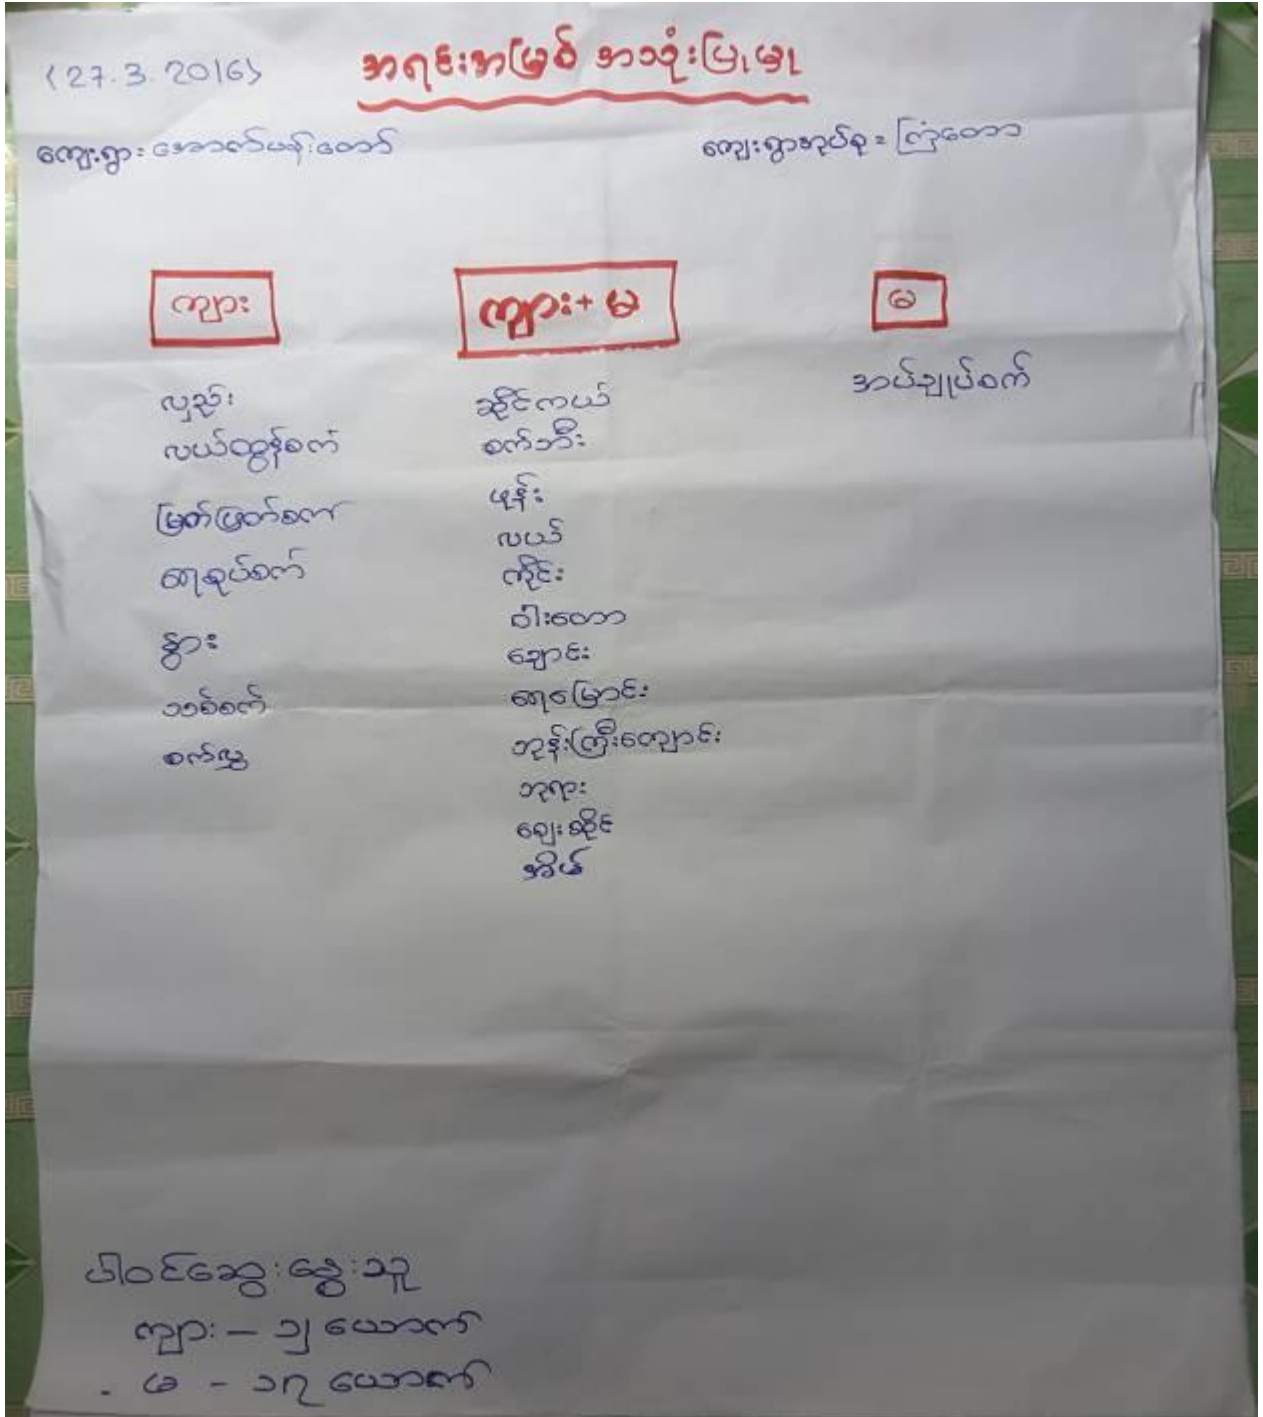 (27.3.2016) အရင်းအမြစ် အသုံးပြုမှု
ကျေးရွာ = အောက်ပန်းတော် ကျေးရွာအုပ်စု = ကြံတော
ကျား
လှည်း
လယ်ထွန်စက်
မြက်ဖြတ်စက်
ရေစုပ်စက်
နွား
သစ်စက်
စက်လွှ
ကျား + မ
ဆိုင်ကယ်
စက်ဘီး
ဖုန်း
လယ်
ကိုင်း
ဝါးတော
ချောင်း
ရေမြောင်း
ဘုန်းကြီးကျောင်း
ဘုရား
ဈေးဆိုင်
အိမ်
မ
အပ်ချုပ်စက်
ပါဝင်ဆွေးနွေးသူ
ကျား – ၁၂ ယောက်
မ – ၁၇ ယောက်